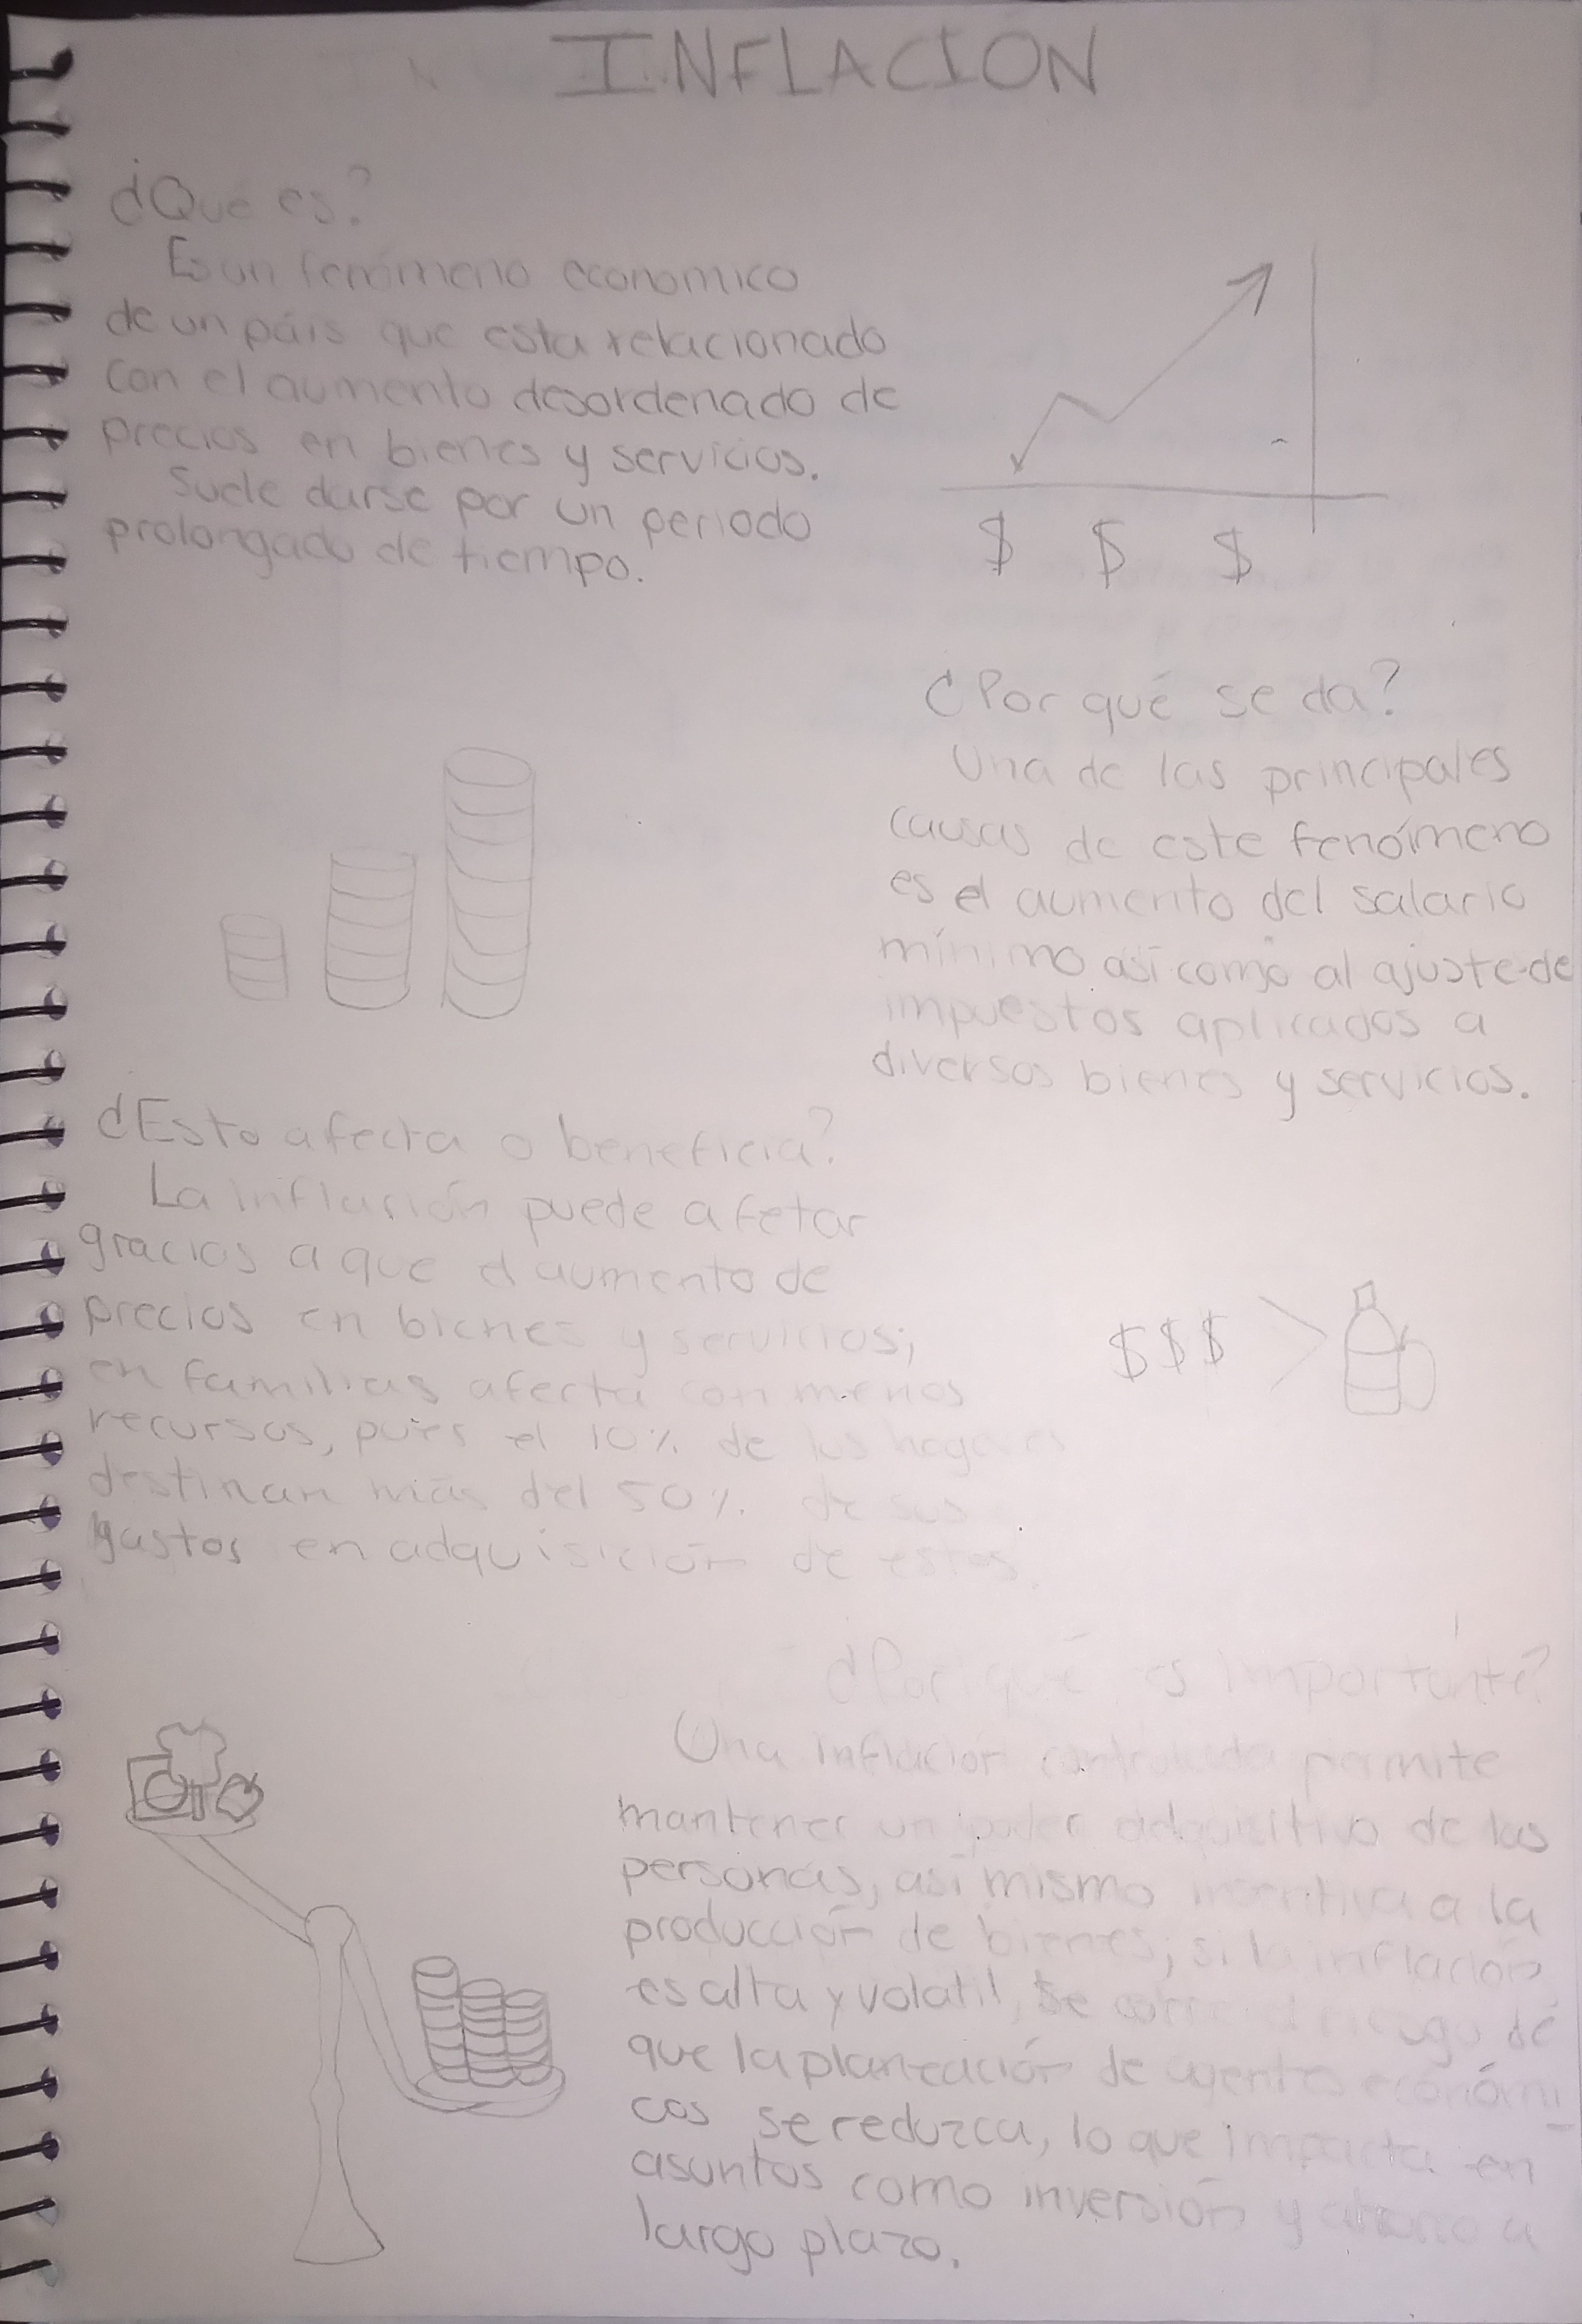 INFLACIÓN
¿Qué es?
Es un fenómeno economico
de un páis que esta relacionado
con el aumento desordenado de
precios en bienes y servicios.
Suele darse por un periodo
prolongado de tiempo.
$ $ $
¿Por qué se da?
Una de las principales
causas de este fenómeno
es el aumento del salario
mínimo así como al ajuste de
impuestos aplicados a
diversos bienes y servicios.
¿Esto afecta o beneficia?
La inflación puede afetar
gracias a que el aumento de
precios en bienes y servicios;
en familias afecta con menos
recursos, pues el 10% de los hogares
destinan más del 50% de sus
gastos en adquisición de estos.
$$$ >
¿Por qué es importante?
Una inflación controlada permite
mantener un poder adquisitivo de las
personas, así mismo incentiva a la
producción de bienes; si la inflación
es alta y volatil, se corre el riesgo de
que la planeación de agentes económi-
cos se reduzca, lo que impacta en
asuntos como inversión y ahorro a
largo plazo.